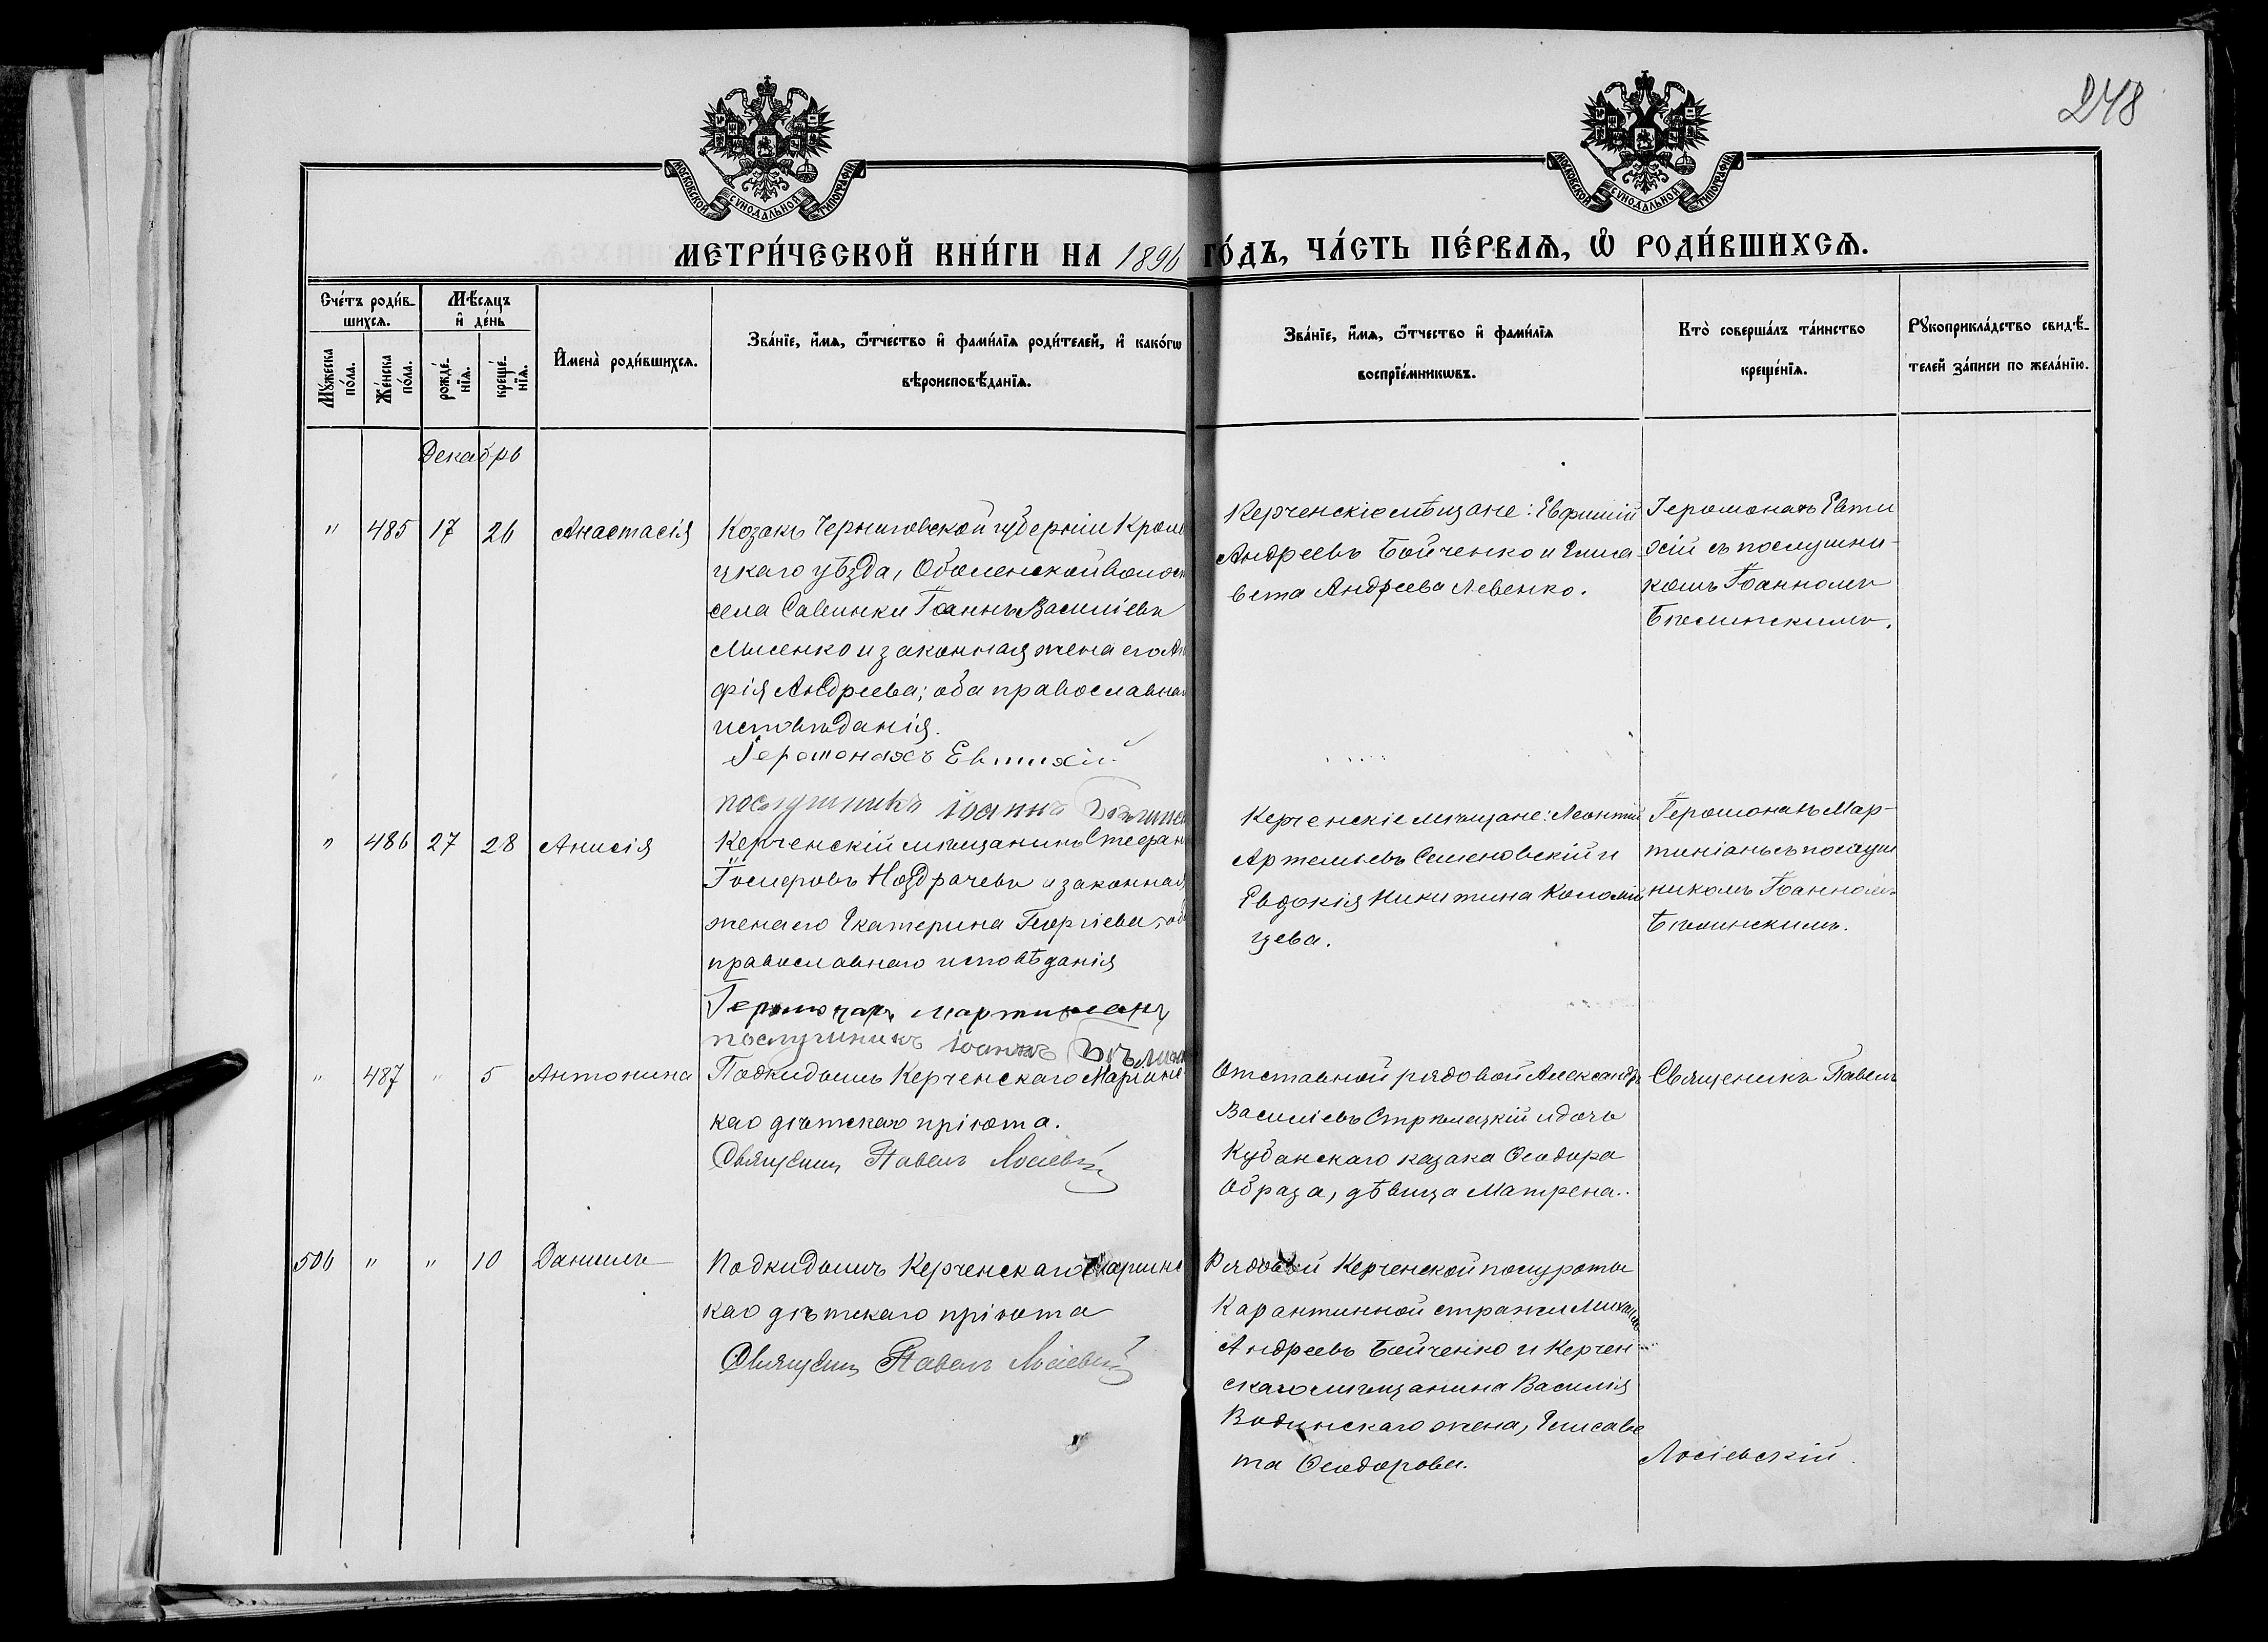 248
МОСКОВСКОЙ СѴНОДАЛЬНОЙ ТИПОГРАФІИ
МОСКОВСКОЙ СѴНОДАЛЬНОЙ ТИПОГРАФІИ
МЕТРИ́ЧЕСКОЙ КНИ́ГИ НА 1896 ГО́ДЪ, ЧА́СТЬ ПЕ́РВАѦ, Ѡ҆ РОДИ́ВШИХСѦ.
Сче́тъ роди́в-
шихсѧ.
Мѣ́сяцъ
и҆ де́нь
Мꙋ́жеска
по́ла.
Же́нска
по́ла.
рожде́-
нїѧ.
креще́-
нїѧ.
И҆мена̀ роди́вшихсѧ.
Зва́нїе, и҆́мѧ, ѻ҆́тчество и҆ фами́лїѧ роди́телей, и҆ како́гѡ
вѣроисповѣ́данїѧ.
Зва́нїе, и҆́мѧ, ѻ҆́тчество и҆ фами́лїѧ
воспрїе́мникѡвъ.
Кто̀ соверша́лъ та́инство
креще́нїѧ.
Рꙋкоприкла́дство свидѣ́-
телей за́писи по жела́нїю.
Декабрь
" 485 17 26 Анастасія
Козакъ Черниговской губерніи Кроле
цкаго уѣзда, Оболенской волос
села Савинки Іоаннъ Василіевъ
Мисенко и законная жена его
фія Андреева; оба православна
исповѣданія.
Іеромонахъ Евтихій
послушникъ іоаннъ Бѣлинс
Керченскіе мѣщане: Евфимій
Андреевъ Бойченко и Елиса-
вета Андреева Левенко.
Іеромонахъ Евти
хій съ послушни-
комъ Іоанномъ
Бѣлинскимъ.
" 486 27 28 Анисія
Керченскій мѣщанинъ Стефанъ
Іосифовъ Ноздрачевъ и законная
жена его Екатерина Георгіева, об
православнаго исповѣданія
Іеромонахъ Мартиніанъ
послушникъ іоаннъ Бѣлинс
Керченскіе мѣщане: Леонтій
Артемьевъ Семеновскій и
Евдокія Никитина Коломій
цева.
Іеромонахъ Мар-
тиніанъ съ послуш
никомъ Іоанномъ
Бѣлинскимъ.
" 487 " 5 Антонина
Подкидышъ Керченскаго Маріинс
каго дѣтскаго пріюта.
Священникъ Павелъ Лосіевскій
Отставной рядовой Александръ
Василіевъ Стрѣлецкій и дочь
Кубанскаго казака Ѳеодора
Образа, дѣвица Матрена..
Священикъ Павелъ
506 " " 10 Даніилъ
Подкидышъ Керченскаго Маріинс
каго дѣтскаго пріюта
Священникъ Павелъ Лосіевскій
Рядовой Керченской полуроты
Карантинной стражи Михаилъ
Андреевъ Бойченко и Керчен-
скаго мѣщанина Василія
Водинскаго жена, Елисаве
та Ѳеодорова.
Лосіевскій.